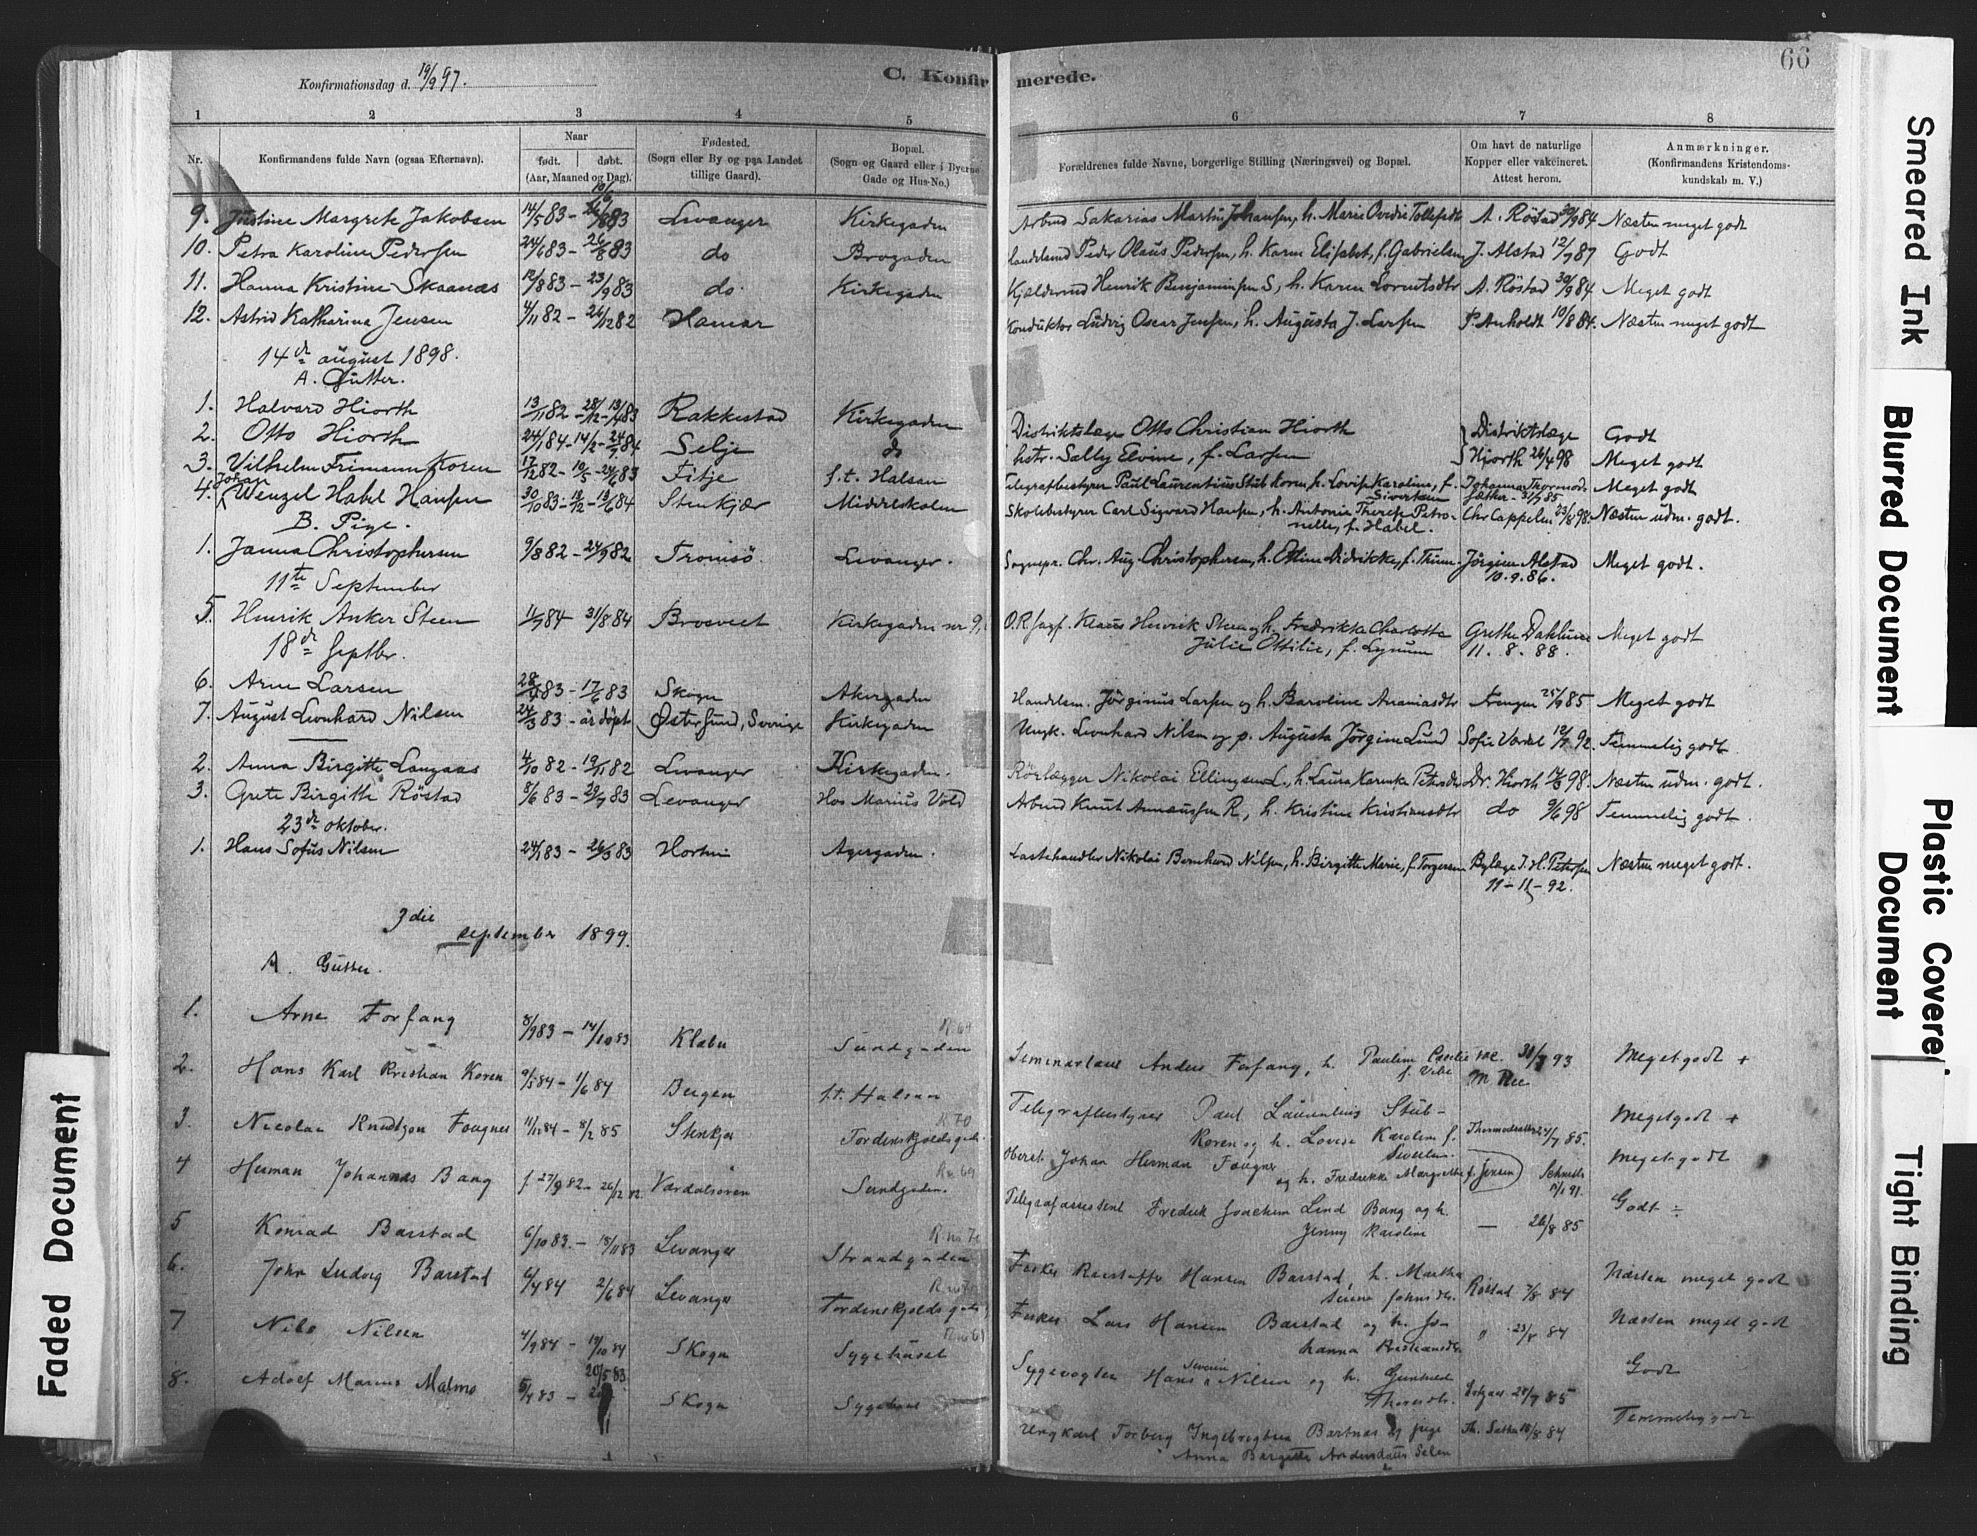 66
Konfirmationsdag d. 19/9 97.
C. Konfirmerede.
1 2 3 4 5 6 7 8
Nr.
Konfirmandens fulde Navn (ogsaa Efternavn).
Naar
født. døbt.
(Aar, Maaned og Dag).
Fødested.
(Sogn eller By og paa Landet
tillige Gaard).
Bopæl.
(Sogn og Gaard eller i Byerne
Gade og Hus-No.)
Forældrenes fulde Navne, borgerlige Stilling (Næringsvei) og Bopæl.
Om havt de naturlige
Kopper eller vakcineret.
Attest herom.
Anmærkninger.
(Konfirmandens Kristendoms-
kundskab m. V.)
9. Justine Margrete Jakobsen 14/5 83 Levanger Kirkegaden Arbmd Sakarias Martin Johansen, h. Marie A. Röstad 30/9 84 Næsten meget godt
10. Petra Karoline Pedersen 24/6 83 – 26/8 83 do Brogaden Handelsmd Peder Olaus Pedersen, h. Karen Elisabet, f. Gabrielsen J. Alstad 12/9 87 Godt
11. Hanna Kristine Skaanes 12/8 83 – 23/9 83 do Kirkegaden Henrik Benjaminsen S, h. Karen Lorntsdtr A. Röstad 30/9 84 Meget godt
12. Astrid Katharina Jensen 4/11 82 – 26/12 82 Hamar Konduktor Ludvig Oscar Jensen, h. Augusta J. Larsen P. Anholdt 10/8 84. Næsten meget godt
14de august 1898.
A. Gutter.
1. Halvard Hiorth 13/11 82 – 28/12 – 13/4 83 Rakkestad Kirkegaden Distriktslæge Otto Christian Hiorth Distriktslæge Godt
2. Otto Hiorth 24/1 84 – 14/2 – 24/7 84 Selje do hstr. Sally Elvine, f. Larsen Hjorth 26/4 98 Meget godt
3. Vilhelm Frimann Koren 17/12 82 – 10/5 – 24/6 83 Fitje f.t. Halsan Telegrafbestyrer Paul Laurentius Stub Koren, h. Lovise Karoline, f. Sivertsen Johanna Thormodsæther 31/7 85 Meget godt
4. Johan Wenzel Habel Hansen 30/10 83 – 13/12 – 13/6 84 Stenkjær Middelskolen Skolebestyrer Carl Sigvard Hansen, h. Antonie Therese Petro-
nelle, f. Habel. Chr Cappelen 23/8 98. Næsten udm. godt.
B. Pige.
1. Janna Christophersen 9/8 82 – 24/9 82 Tromsö. Levanger. Sognepr. Chr. Aug. Christophersen, h. Didrikke, f. Jörgine Alstad 10.9.86. Meget godt.
11te September
5. Henrik Anker Steen 11/7 84 31/8 84 Kirkegaden nr 9, O.R.sagf. Klaus Henrik Steen og h. Fredrikke Charlotte
Julie Ottilie, f. Lynum Grethe Dahlum 11.8.88. Meget godt
18de Septbr.
6. Arne Larsen 28/4 83 – 17/6 83 Skogn Akergaden Handelsm. Jörginus Larsen og h. Baroline Ananiasdtr 25/9 85 Meget godt
7. August Leonhard Nilsen 24/3 83 – är döpt Östersund, Sverige Kirkegaden Ungk. Leonhard Nilsen og p. Augusta Jörgine Lund Sofie Vardal 12/7 92. Temmelig godt.
2. Anna Birgitte Langaas 4/10 82 – 19/11 82 Levanger Kirkegaden. Rörlægger Nikolai Ellingsen L., h. Laura Karenka Petersdtr Dr. Hiorth 17/3 98. Næsten udm. godt.
3. Grete Birgitte Röstad 8/6 83 – 29/7 83 Levanger Hos Marius Vold Arbmd Knut R, h. Kristine Kristiansdtr do 9/6 98 Temmelig godt.
23de oktober.
1. Hans Sofus Nilsen 24/1 83 – 26/3 83 Horten Agergaden. Lastehandler Nikolai Bernhard Nilsen, h. Birgitte Marie, f. Torgersen Bylæge J. H. Petersen 11–11–92. Næsten meget godt.
3die
september 1899.
A. Gutter.
1. Arne Forfang 8/9 83 – 14/10 83 Klæbu Sundgaden Seminarlærer Anders Forfang, h. Pauline Cecilie
f. Vibe vac. 30/7 93 M Ree Meget godt +
2. Hans Karl Kristian Koren 9/5 84 – 1/6 84 Bergen f.t. Halsan Telegrafbestyrer Paul Laurentius Stub-
Koren og h. Lovise Karoline f.
Sivertsen. 24/7 85. Meget godt +
3. Nicolai Knudtzon Fougner 11/12 84 – 8/2 85 Stenkjær R 70 Tordenskjolds gate Oberst Johan Herman Fougner
og h. Fredrikke Margrethe f. Jensen Meget godt
4 Herman Johannes Bang f 27/9 82 – 26/12 82 Værdalsören Sundgaden. Telegrafassistent Fredrik Joachim Lind Bang og h.
Jenny Karoline — 26/8 85 Godt ÷
5 Konrad Barstad 6/10 83. – 18/11 83 Levanger Strandgaden Fisker Hansen Barstad, h. Martha Johnsdtr. Röstad 7/8 84 Næsten meget godt
6. John Ludvig Barstad 6/4 84 2/6 84 Levanger Tordenskjolds gate Fisker Lars Hansen Barstad og h. Jo-
hanna Kristiansdtr. " 23/8 84 Næsten meget godt
7 Nils Nilsen 4/9 84 – 19/10 84 Skogn Sygehuset Sygevogter Hans Severin Nilsen og h. Gunhild 20/9 85 Godt
8. Adolf Marius Malmo 5/4 83 – 20/5 83 Skogn Sygehuset Ungkarl Torberg Ingebrigtsen Bartnæs og pige
Anna Bergitte Andersdatter Salen Th. Sæther 18/8 84 Temmelig godt
Smeared Ink
Blurred Document
Plastic Covered
Document
Tight Binding
Faded Document